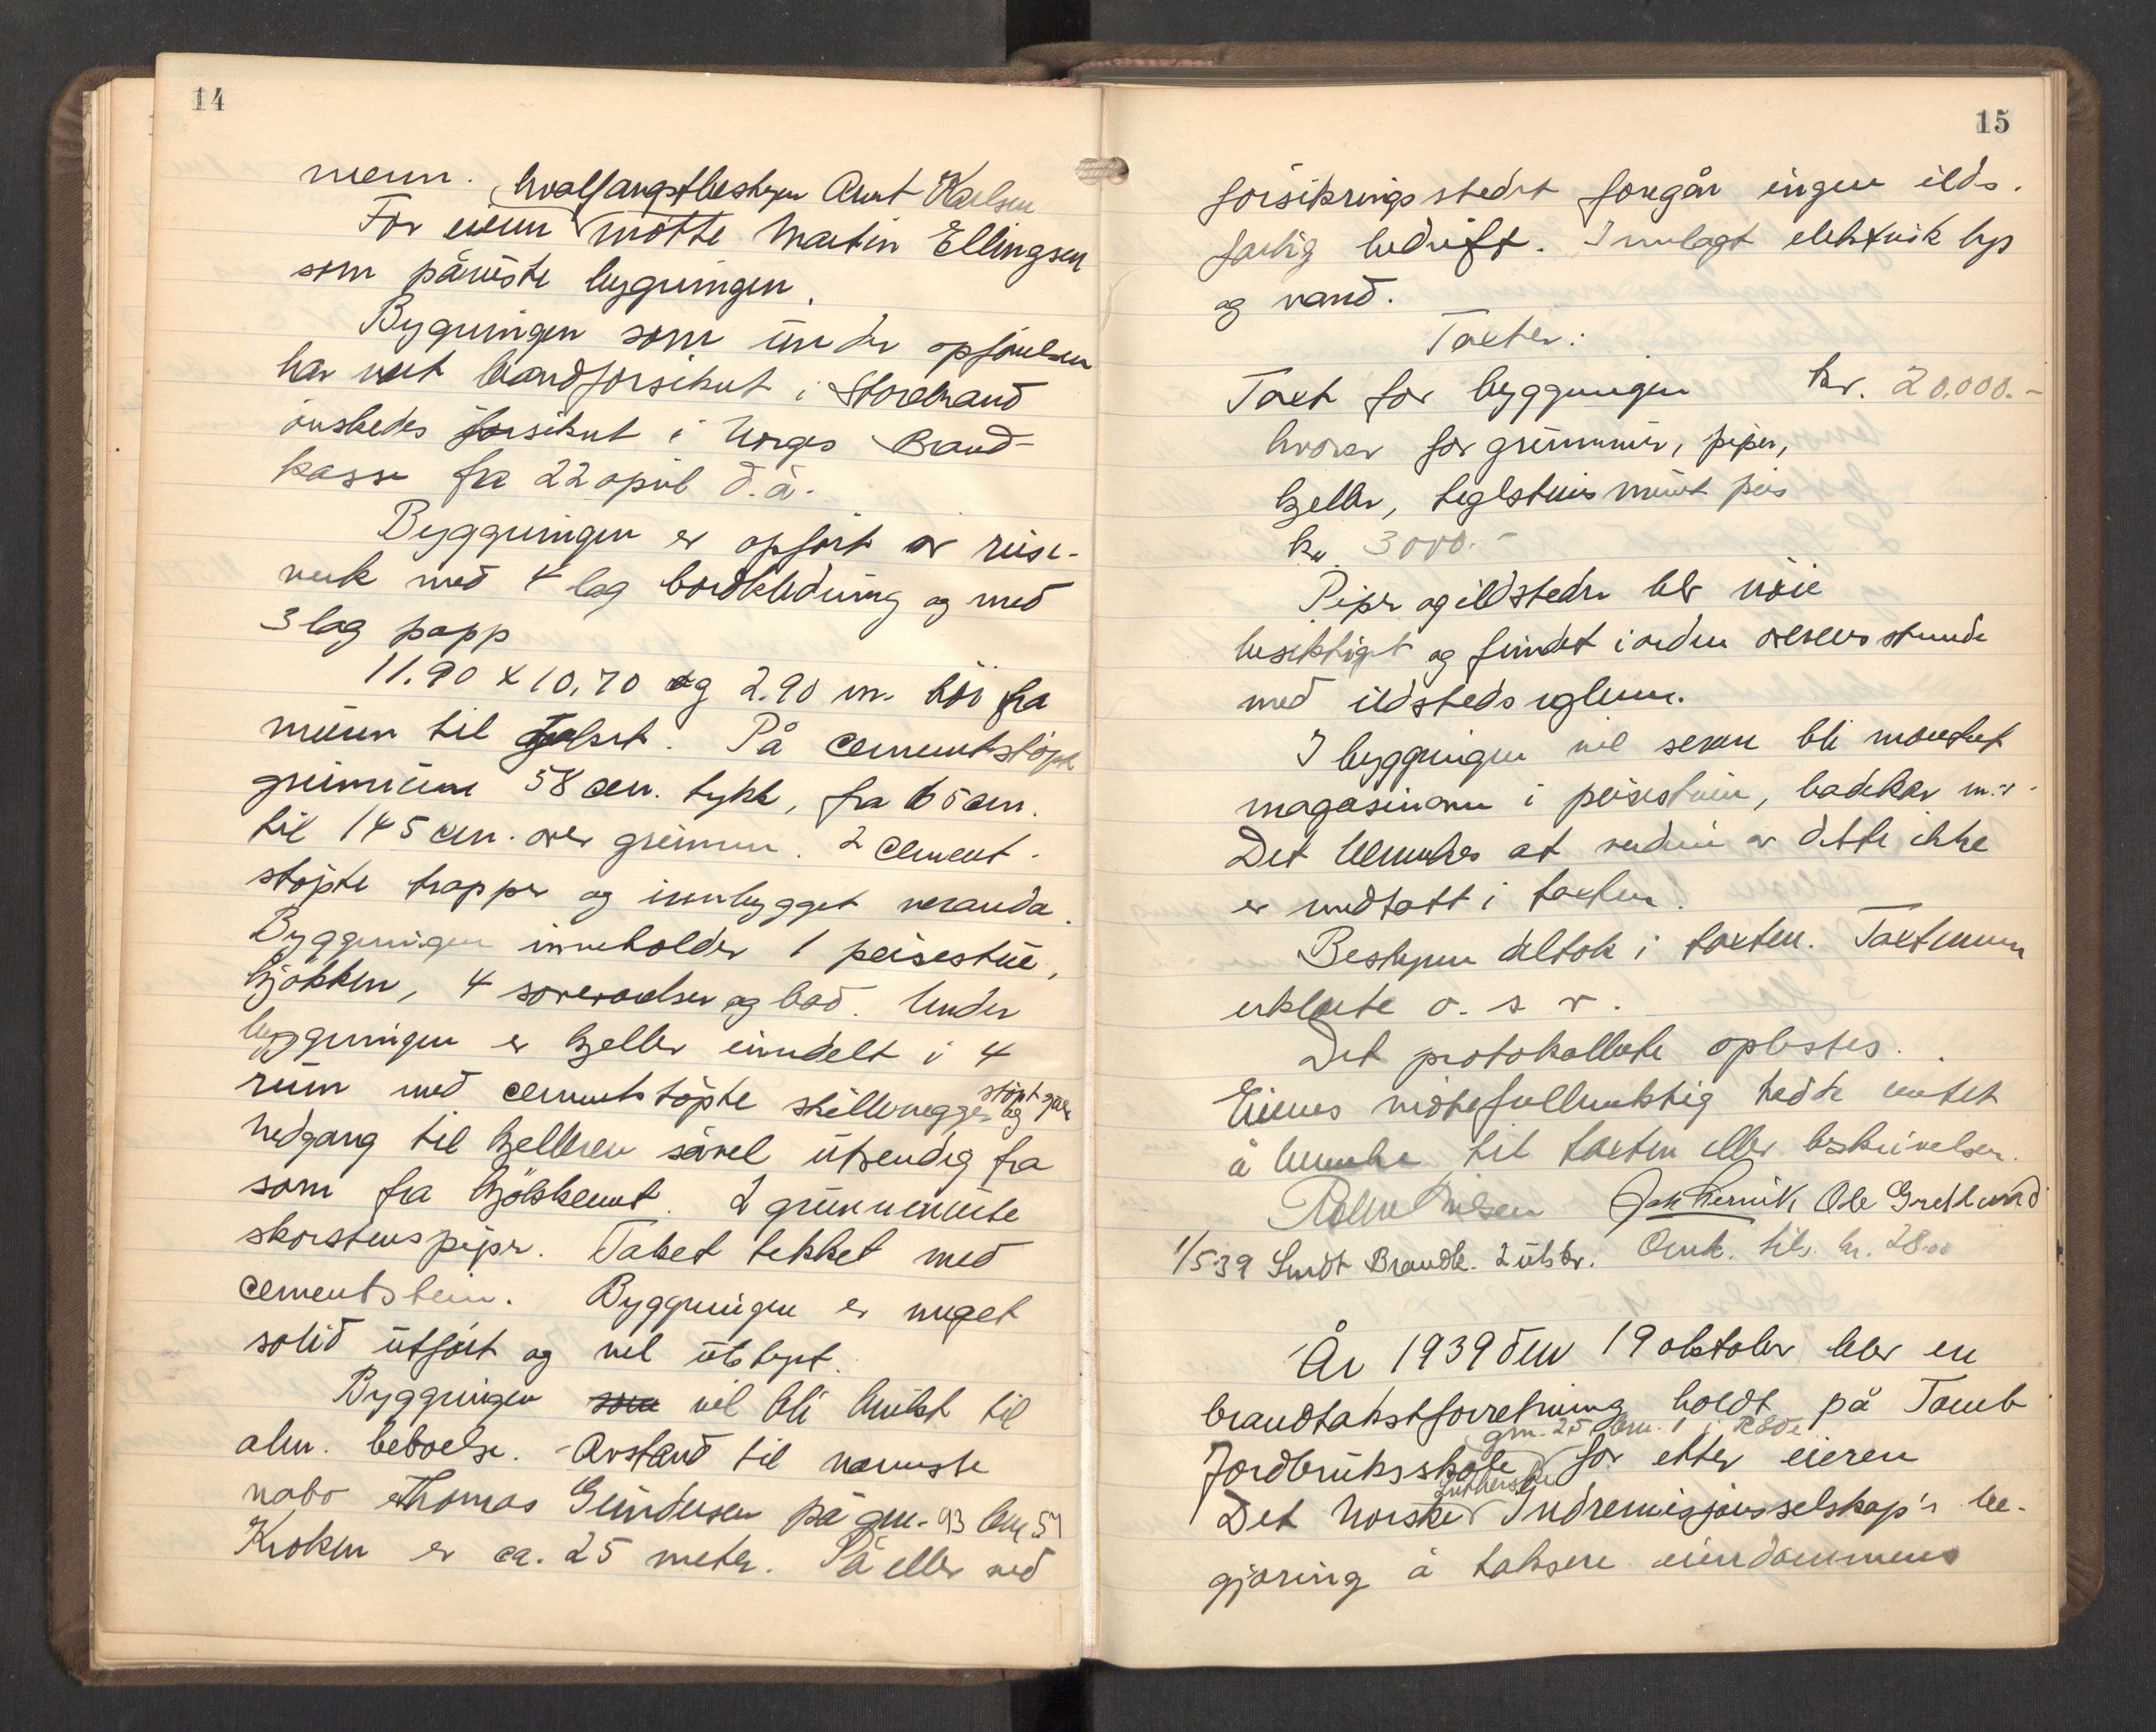 14
menn. hvalfangstbestyrer Arnt Karlsen
For eieren møtte Martin Ellingsen
som påviste bygningen.
Bygningen som under opførelsen
har vært brandforsikret i Storebrand
ønskedes forsikret i Norges Brand-
kasse fra 22 april d.å.
Byggningen er opført av reise-
verk med 4 lag bordkledning og med
3 lag papp
11.90 x 10.70 og 2.90 m. høi fra
muren til gesimset. På cementstøpt
grunnmur 58 cm. tykk, fra 65 cm.
til 145 cm. over grunnen. 2 cement-
støpte trapper og innbygget veranda.
Byggningen inneholder 1 peisestue,
kjøkken, 4 soveværelser og bad. Under
byggningen er kjeller inndelt i 4
rum med cementstøpte skillevegger og støpt gulv
Nedgang til kjelleren såvel utvendig fra
som fra kjøkkenet. 2 grunnmurte
skorstenspiper. Taket tekket med
cementstein. Byggningen er meget
solid utført og vel utstyrt.
Byggningen som vil bli brukt til
alm. beboelse. Avstand til nærmeste
nabo Thomas Gundersen på gnr. 93 bnr. 57
Kroken er ca. 25 meter. På eller ved
15
forsikringsstedet foregår ingen ilds-
farlig bedrift. Innlagt elektrisk lys
og vand.
Taxter:
Taxt for byggningen kr. 20.000.-
hvorav for grunnmur, piper,
kjeller, teglsteinsmurt peis
kr 3000.-
Piper og ildsteder blev nøie
besiktiget og fundet i orden overensstemmende
med ildstedsreglene.
I byggningen vil senere bli montert
magasinovn i peisestuen, badekar m.v.
Det bemerkes at verdien av dette ikke
er medtatt i taxten.
Bestyreren deltok i taxten. Taxtmennene
erklærte o. s. v.
Det protokollerte oplestes.
Eierens møtefullmektig hadde intet
å bemerke til taxten eller beskrivelsen.
Nilsen Jak Hernik Ole Grethund
1/5 39 Sendt Brandk. 2 utskr. Omk. tils. kr. 28.00
År 1939 den 19 oktober blev en
brandtakstforretning holdt på Tomb
Jordbruksskole gnr. 25 bnr. 1 i Råde for efter eieren
Det Norske lutherske Indremisjonsselskap's be-
gjæring å taksere eiendommens